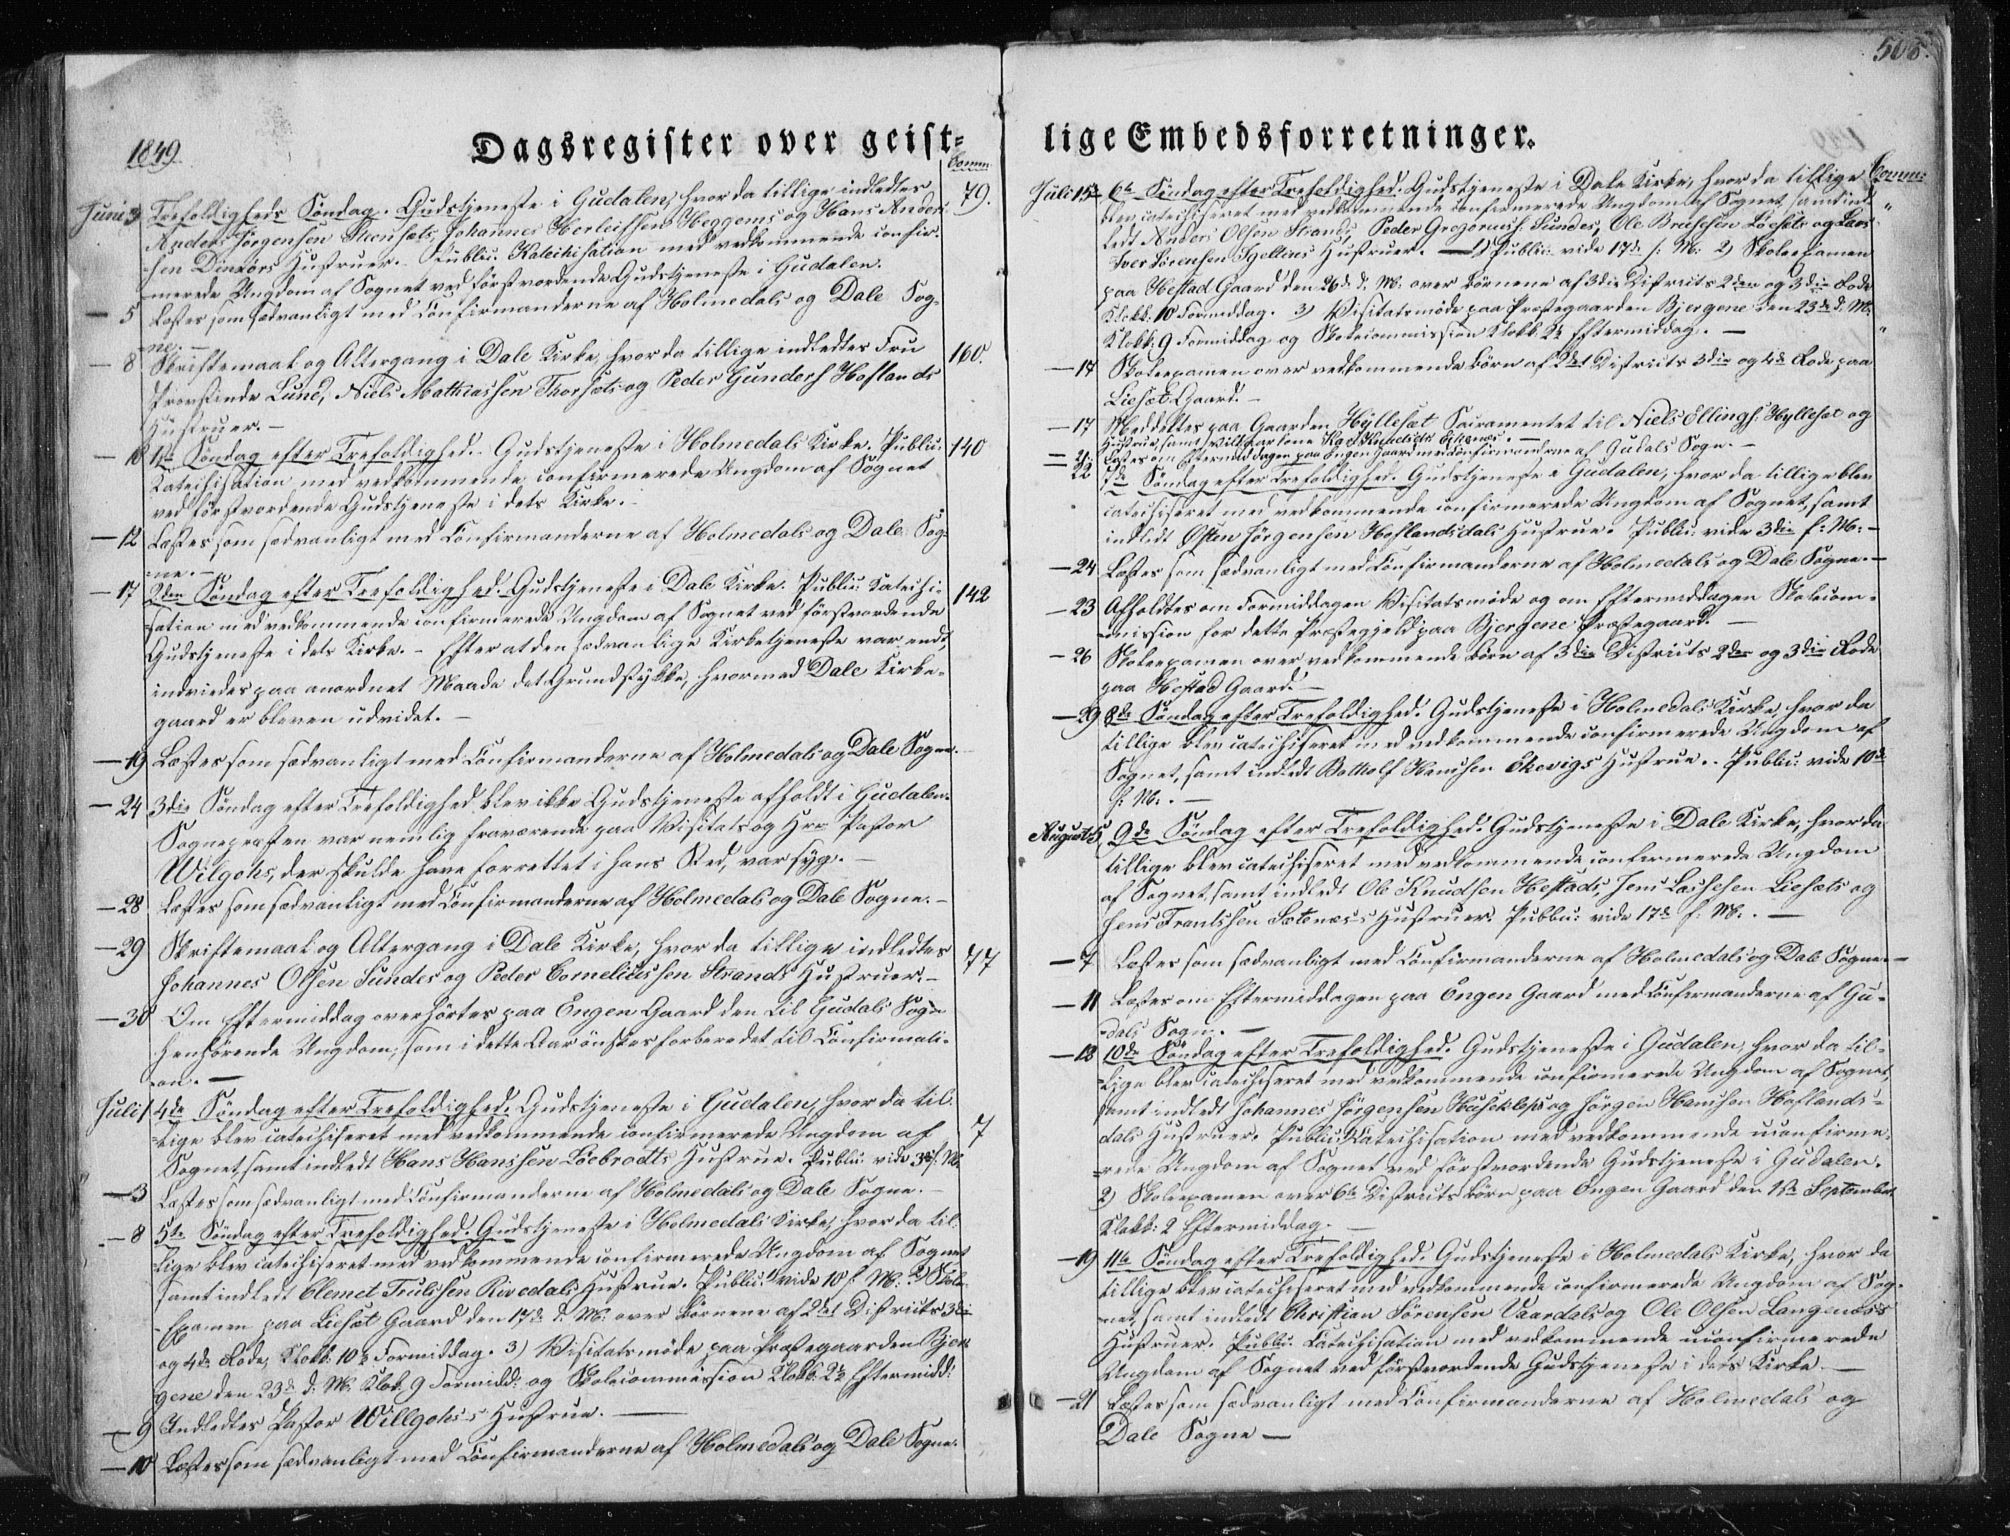 508.
Dagsregister over geist-
lige Embedsforretninger.
1849.
Comm.
Juni 3 Trefoldigheds Søndag. Gudstjeneste i Gudalen, hvor da tillige indledtes 79.
Anders Jørgensen Steensæts, Johannes Herleifsen Heggems og Hans Ander-
sen Dinxørs Hustruer. – Public. Katechisation med vedkommende confir-
merede Ungdom af Sognet ved førstvordende Gudstjeneste i Gudalen.
– 5 Læstes som sædvanligt med Confirmanderne af Holmedals og Dale Sog-
ne. –
– 8 Skriftemaal og Altergang i Dale Kirke, hvor da tillige indledtes Fru 160.
Provstinde Lund, Niels Mathiassen Thorsæts og Peder Gunders. Hoflands
Hustruer. –
– 10 1ste Søndag efter Trefoldighed. – Gudstjeneste i Holmedals Kirke. Public. 140
Katechisation med vedkommende confirmerede Ungdom af Sognet
ved førstvordende Gudstjeneste i dets Kirke. –
– 12 Læstes som sædvanligt med Confirmanderne af Holmedals og Dale Sog-
ne. –
– 17 2den Søndag efter Trefoldighed. Gudstjeneste i Dale Kirke. Public. Katechi- 142
sation med vedkommende confirmerede Ungdom af Sognet ved førstvordende
Gudstjeneste i dets Kirke. – Efter at den sædvanlige Kirketjeneste var endt,
indviedes paa anordnet Maade det Grundstykke, hvormed Dale Kirke-
gaard er bleven udvidet. –
– 19 Læstes som sædvanligt med Confirmanderne af Holmedals og Dale Sogne.
– 24 3die Søndag efter Trefoldighed blev ikke Gudstjeneste afholdt i Gudalen.
Sognepræsten var nemlig fraværende paa Visitats og Hrr Pastor
Wilgohs, der skulde have forrettet i hans Sted, var syg. –
– 28 Læstes som sædvanligt med Confirmanderne af Holmedals og Dale Sogne. –
– 29 Skriftemaal og Altergang i Dale Kirke, hvor da tillige indledtes 77
Johannes Olsen Sundes og Peder Corneliussen Strands Hustruer. –
– 30 Om Eftermiddag overhørtes paa Engen Gaard den til Gudals Sogn
henhørende Ungdom, som i dette Aar ønskes forberedet til Confirmati-
on. –
Juli 1 4de Søndag efter Trefoldighed. Gudstjeneste i Gudalen, hvor da til- 7
lige blev catechiseret med vedkommende confirmerede Ungdom af
Sognet, samt indledt Hans Hanssen Løebrodtts Hustrue. Public. vide 3die f. M.
– 3 Læstes som sædvanligt med Confirmanderne af Holmedals og Dale Sogne. –
– 8 5te Søndag efter Trefoldighed. Gudstjeneste i Holmedals Kirke, hvor da til-
lige blev catechiseret med vedkommende confirmerede Ungdom af Sognet
samt indledt Clemet Trulssen Rivedals Hustrue. Public. 1) vide 10 f. M. 2) Skole-
Examen paa Liesæt Gaard den 17de d. M. over Børnene af 2det Districts 3die
og 4de Rode, Klokk. 10½ Formiddag. 3) Visitatsmøde paa Præstegaarden Bjer-
gene den 23de d. M. Klok. 9 Formidd. og Skolecommission Klokk. 2½ Eftermidd.
– 9 Indledtes Pastor Willgohs's Hustrue. –
– 10 Læstes som sædvanligt med Confirmanderne af Holmedals og Dale Sogne.
Comm.
Juli 15 6te Søndag efter Trefoldighed. Gudstjeneste i Dale Kirke, hvor da tillige
blev catechiseret med vedkommende confirmerede Ungdom af Sognet, samt ind-
ledt Anders Olsen Strands, Peder Gregorius. Sundes, Ole Bruessen Løesæts og
Iver Sørensen Hustruer. – 1) Public. vide 17de f. M. 2) Skoleexamen
paa Hestad Gaard den 26de d. M. over Børnene af 3die Districts 2den og 3die Rode
Klokk. 10 Formiddag. 3) Visitatsmøde paa Præstegaarden Bjergene den 23de d. M.
Klokk. 9 Formiddag og Skolecommission Klokk. 2½ Eftermiddag. –
– 17 Skoleexamen over vedkommende Børn af 2det Districts 3die og 4de Rode paa
Liesæt Gaard. –
– 17 Meddeltes paa Gaarden Hyllesæt Sacramentet til Niels Ellings. Hyllesæt og
Hustrue, samt
– 21 Læstes om Eftermiddagen paa Engen Gaard med Confirmanderne af Gudals Sogn. –
– 22 7de Søndag efter Trefoldighed. Gudstjeneste i Gudalen, hvor da tillige blev
catechiseret med vedkommende confirmerede Ungdom af Sognet, samt
indledt Østen Jørgensen Hoflandsdals Hustrue. Public. vide 3die f. M. –
– 24 Læstes som sædvanligt med Confirmanderne af Holmedals og Dale Sogne. –
– 23 Afholdtes om Formiddagen Visitatsmøde og om Eftermiddagen Skolecom-
mission for dette Præstegjeld paa Bjergene Præstegaard. –
– 26 Skoleexamen over vedkommende Børn af 3die Districts 2den og 3die Rode
paa Hestad Gaard. –
– 29 8de Søndag efter Trefoldighed. Gudstjeneste i Holmedals Kirke, hvor da
tillige blev catechiseret med vedkommende confirmerede Ungdom af
Sognet, samt indledt Botholf Hanssen Ekevigs Hustrue. Public. vide 10de
f. M. –
August 5 9de Søndag efter Trefoldighed. Gudstjeneste i Dale Kirke, hvor da
tillige blev catechiseret med vedkommende confirmerede Ungdom
af Sognet, samt indledt Ole Knudsen Hestads, Jens Lassesen Liesæts og
Jens Frantssen Sætenæs's Hustruer. Public. vide 17de f. M. –
– 7 Læstes som sædvanligt med Confirmanderne af Holmedals og Dale Sogne. –
– 11 Læstes om Eftermiddagen paa Engen Gaard med Confirmanderne af Gu-
dals Sogn. –
– 12 10de Søndag efter Trefoldighed. Gudstjeneste i Gudalen, hvor da til-
lige blev catechiseret med vedkommende confirmerede Ungdom af Sognet,
samt indledt Johannes Jørgensen Huseklep's og Jørgen Hanssen Hoflands-
dals Hustruer. Public. 1) Katechisation med vedkommende uconfirme-
rede Ungdom af Sognet ved førstvordende Gudstjeneste i Gudalen.
2) Skoleexamen over 6te Districts Børn paa Engen Gaard den 1ste September
Klokk. 2 Eftermiddag. –
– 19 11te Søndag efter Trefoldighed. Gudstjeneste i Holmedals Kirke, hvor da
tillige blev catechiseret med vedkommende confirmerede Ungdom af Sog-
net, samt indledt Christian Sørensen Vaardals og Ole Olsen Langenæs's
Hustruer. Public. Catechisation med vedkommende uconfirmerede
Ungdom af Sognet ved førstvordende Gudstjeneste i dets Kirke. –
– 21 Læstes som sædvanligt med Confirmanderne af Holmedals og
Dale Sogne –